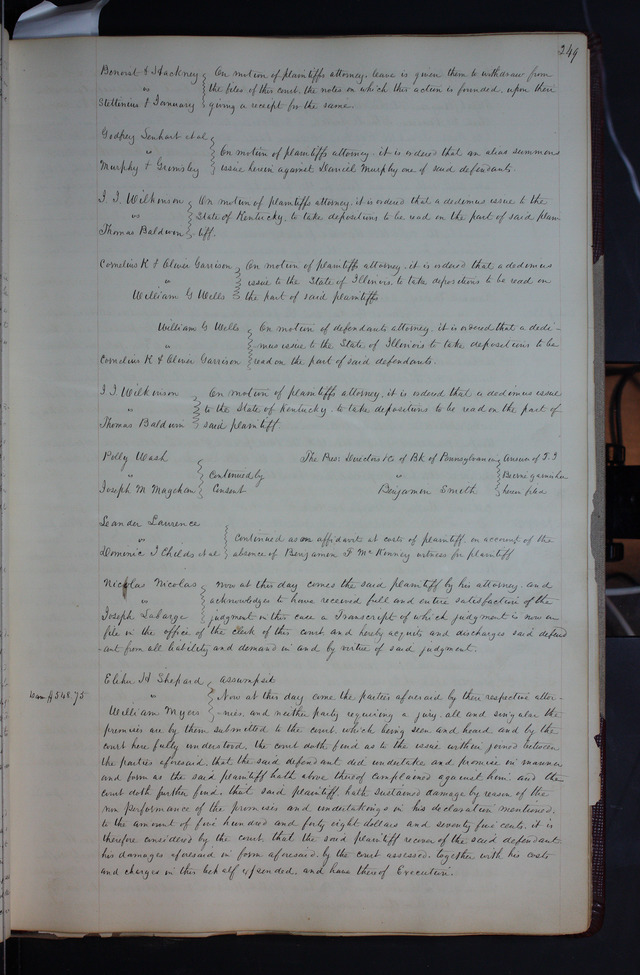 249
Benoist & Hackney } On motion of plaintiffs attorney, leave is given them to withdraw from
" } the files of this court, the notes on which this action is founded, upon their
Stettinius & January } giving a receipt for the same.
Godfrey Lenhart et al
" } On motion of plaintiffs attorney, it is ordered that an alias summons
Murphy & Grimsley } issue herein against Daniel Murphy one of said defendants.
I. I. Wilkinson } On motion of plaintiffs attorney, it is ordered that a dedimus issue to the
" } State of Kentucky, to take depositions, to be read on the part of said plain
Thomas Baldwin } tiff.
Cornelius K & Oliver Garrison } On motion of plaintiffs attorney, it is ordered that a dedimus
" } issue to the State of Illinois, to take depositions to be read on
William G Wells } the part of said plaintiffs
William G Wells } On motion of defendants attorney, it is ordered that a dedi-
" } mus issue to the State of Illinois to take depositions to be
Cornelius K & Oliver Garrison } read on the part of said defendants.
I. I. Wilkinson } On motion of plaintiffs attorney, it is ordered that a dedimus issue
" } to the State of Kentucky, to take depositions to be read on the part of
Thomas Baldwin } said plaintiff.
Polly Wash
" } Continued by
Joseph M Magehan } Consent
The Pres: Directors &c of Bk of Pennsylvania } Answer of
" } garnishee
Benjamin Smith } herein filed
Leander Laurence
" } Continued as on affidavit at costs of plaintiff, on account of the
Domenic I Childs et al } absence of Benjamin F McKenney witness for plaintiff
Nicolas Nicolas } Now at this day comes the said plaintiff by his attorney, and
" } acknowledges to have received full and entire satisfaction of the
Joseph Labarge } judgment in this case a Transcript of which judgment is now on
file in the office of the clerk of this court and hereby acquits and discharges said defend
-ant from all liability and demand in and by virtue of said judgment.
Elihu H Shepard } assumpsit
Dam $548.75
" } Now at this day come the parties aforesaid by their respective attor-
William Myers } nies, and neither party requiring a jury, all and singular the
premises are by them submitted to the court, which being seen and heard, and by the
court here fully understood, the court doth find as to the issue within joined between
the parties aforesaid, that the said defendant did undertake and promise in manner
and form as the said plaintiff hath above thereof complained against him, and the
court doth further find, that said plaintiff, hath sustained damage by reason of the
non performance of the promises and undertakings in his declaration mentioned,
to the amount of five hundred and forty eight dollars and seventy five cents, it is
therefore considered by the court, that the said plaintiff recover of the said defendant
his damages aforesaid in form aforesaid, by the court assessed, together with his costs
and charges in this behalf expended, and have thereof Execution.